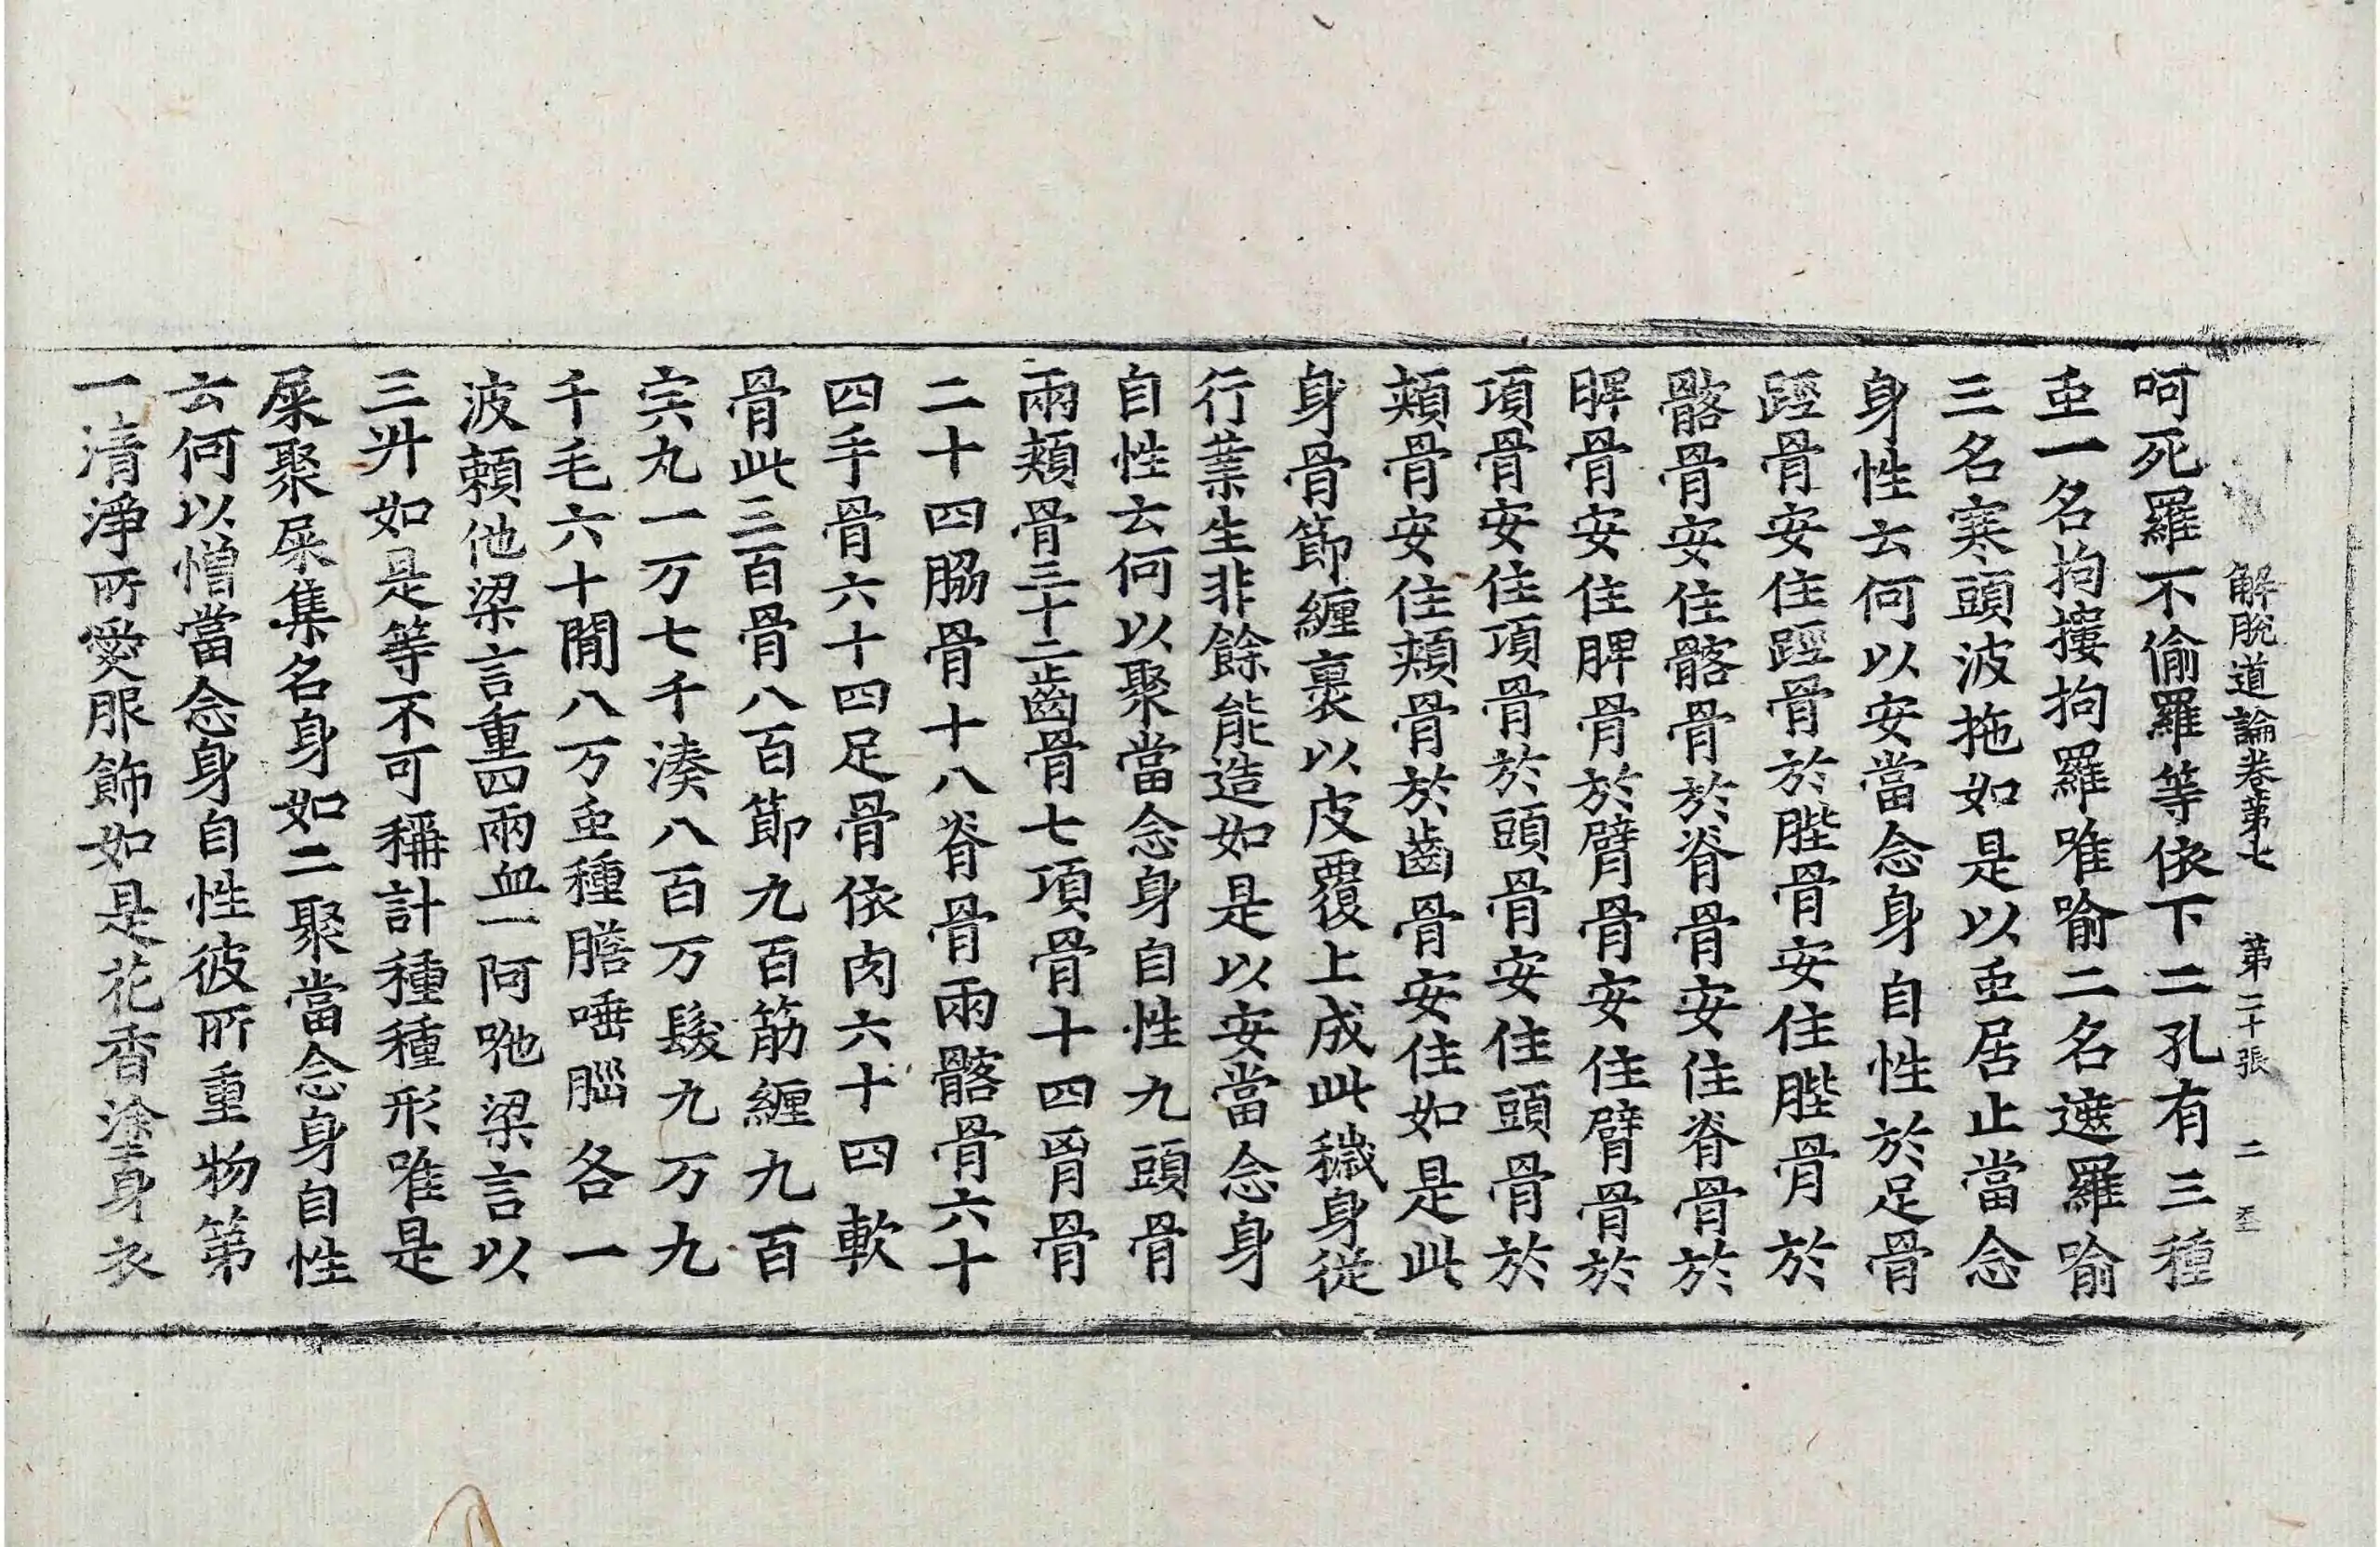 解脫道論卷第七 第二十張 二 𦤺
呵死羅不偷羅等依下二孔有三種
䖝一名拘摟拘羅唯喻二名遮羅喻
三名寒頭波拖如是以䖝居止當念
身性云何以安當念身自性於足骨
踁骨安住踁骨於䏶骨安住䏶骨於
髂骨安住髂骨於脊骨安住脊骨於
胛骨安住胛骨於臂骨安住臂骨於
項骨安住項骨於頭骨安住頭骨於
頰骨安住頰骨於齒骨安住如是此
身骨節纏裹以皮覆上成此穢身從
行業生非餘能造如是以安當念身
自性云何以聚當念身自性九頭骨
兩頰骨三十二齒骨七項骨十四胷骨
二十四脇骨十八脊骨兩髂骨六十
四手骨六十四足骨依肉六十四軟
骨此三百骨八百節九百筋纏九百
宍丸一万七千湊八百万髮九万九
千毛六十間八万䖝種膽唾𦛁各一
波賴他梁言重四兩血一阿咃梁言以
三升如是等不可稱計種種形唯是
屎聚屎集名身如二聚當念身自性
云何以憎當念身自性彼所重物第
一清淨所愛服飾如是花香塗身衣